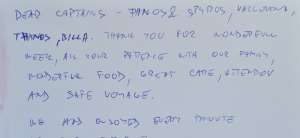 DEAR CAPTAINS - & SPYROS,
THANOS, BILLA. THANK YOU FOR WONDERFULL
WEEK, ALL YOUR PATIENCE WITH OUR FAMILY,
WONDERFUL FOOD, GREAT CARE, ATTENTION
AND SAFE VOYAGE.
WE HAD ENJOYED EVERY MINUTE